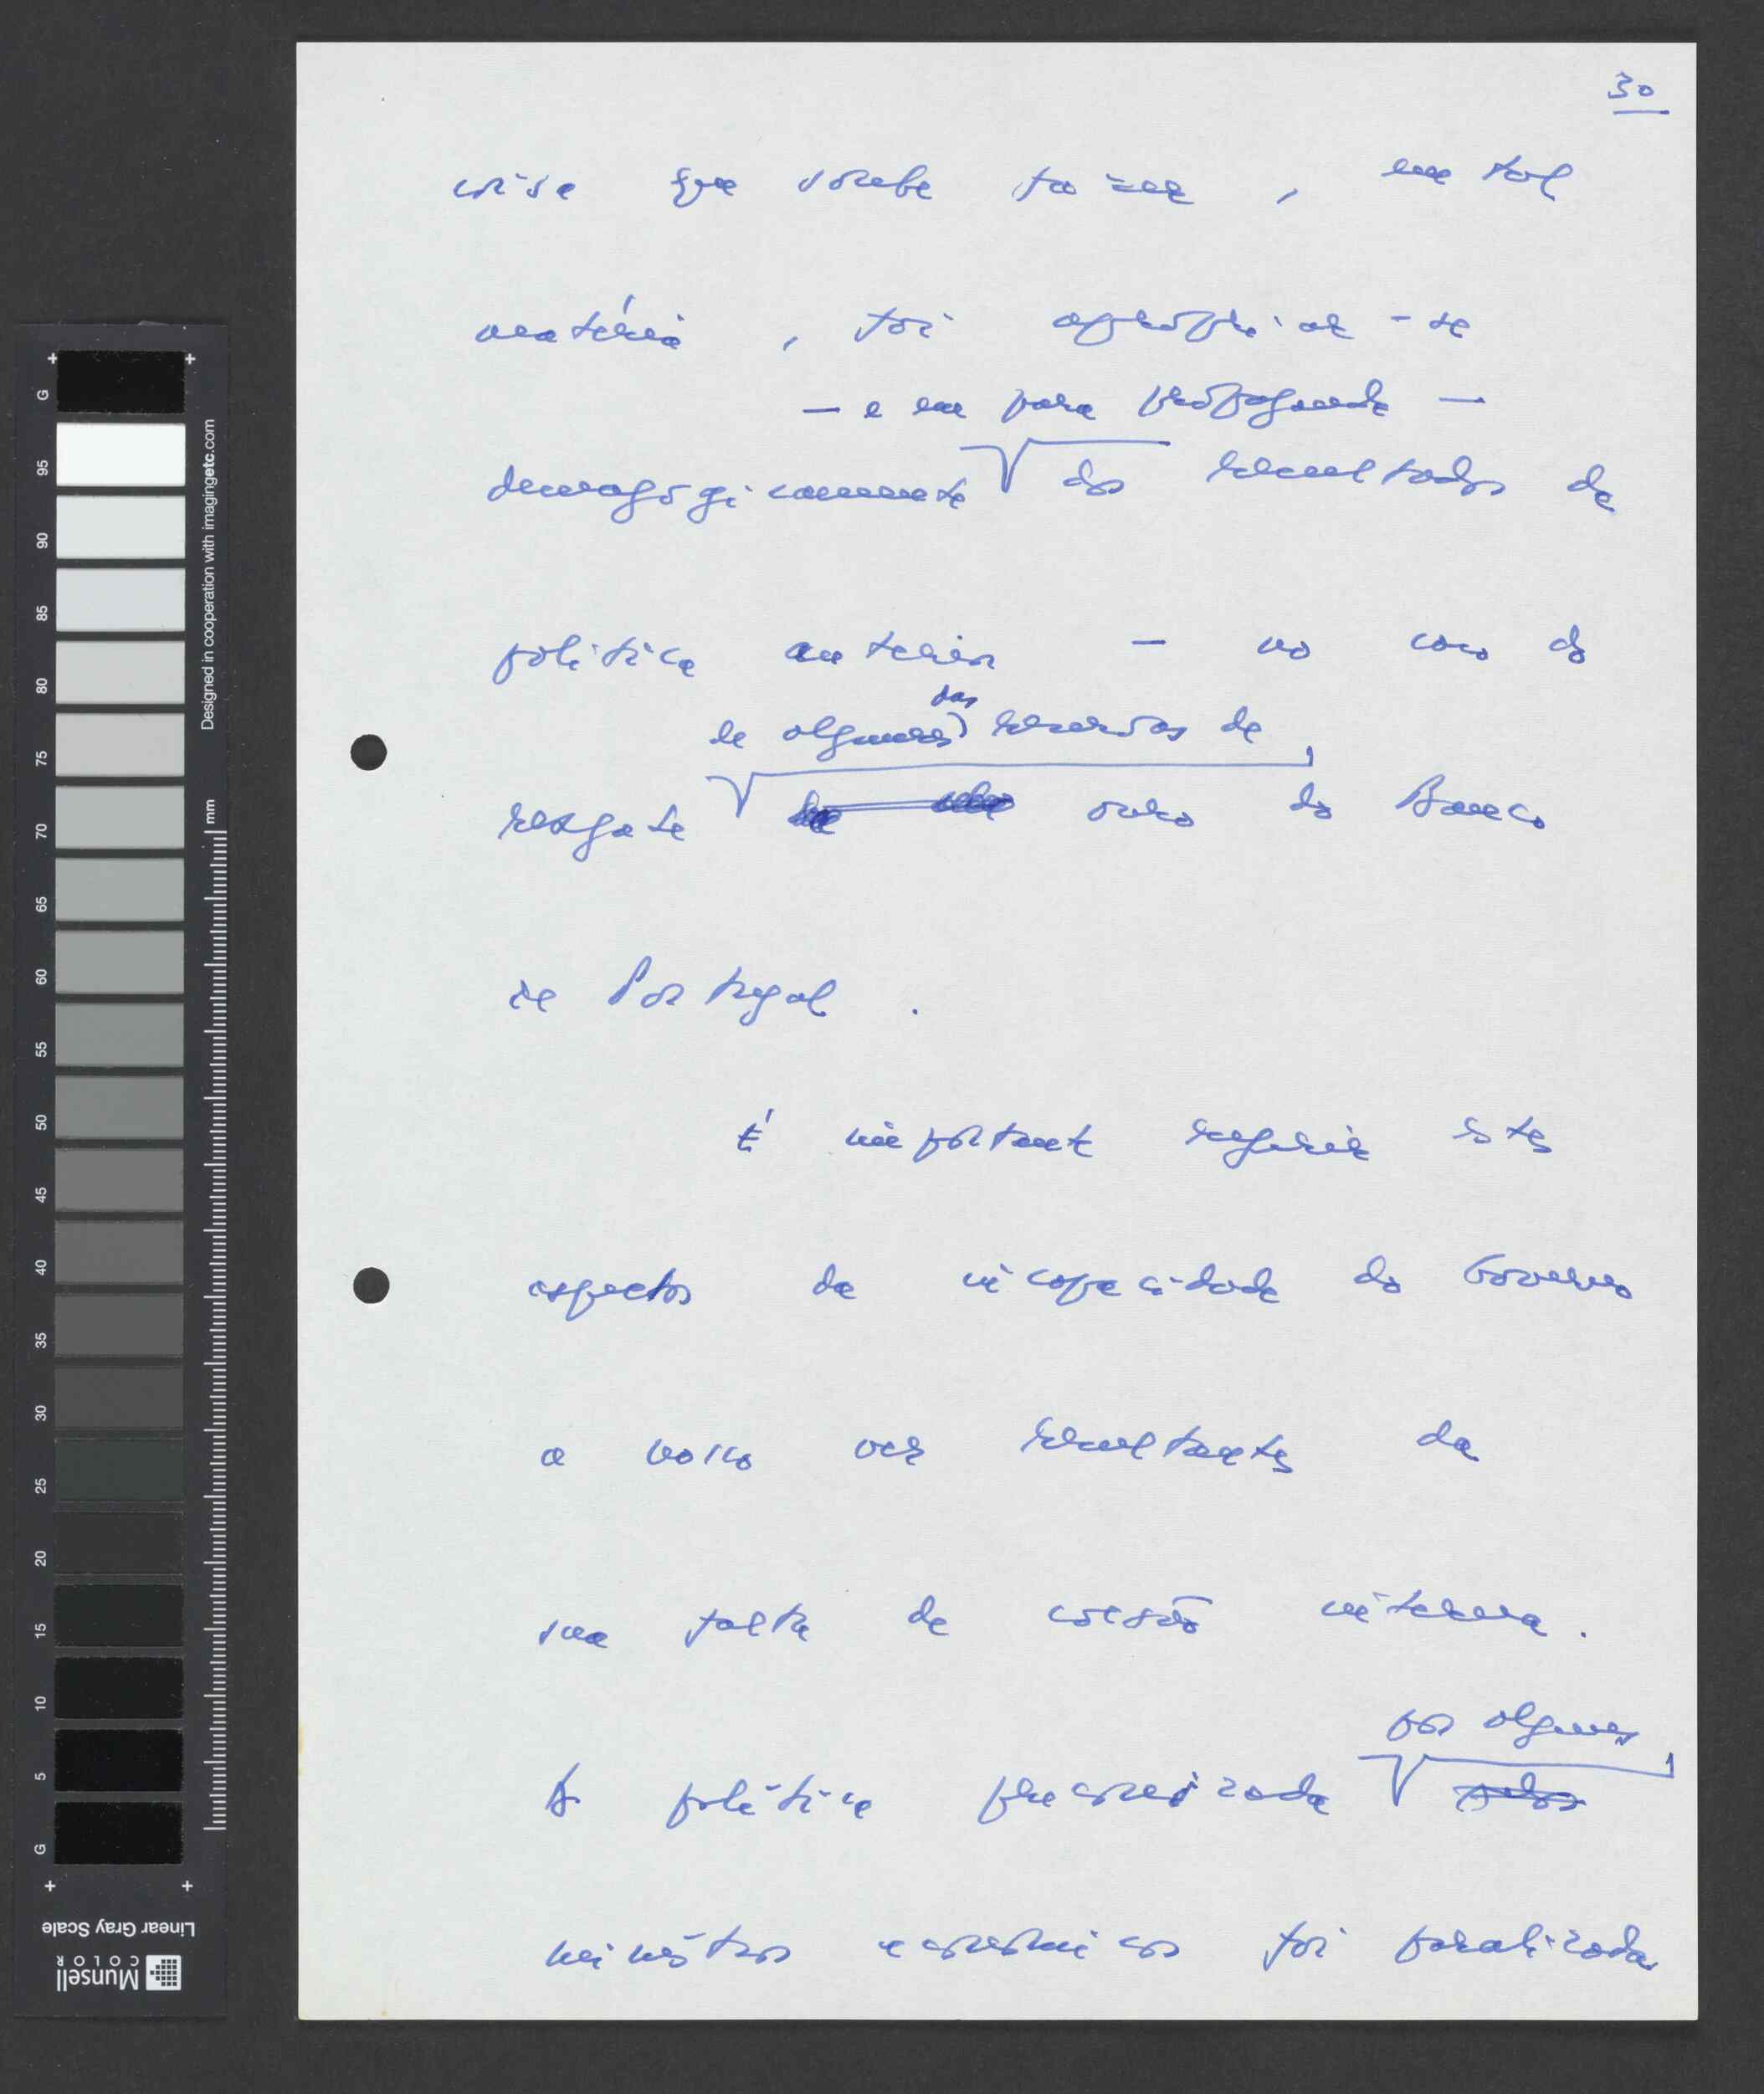 30
coisa que soube fazer, em tal
matéria, foi apropriar-se
— e em pura propaganda —
demagogicamente dos resultados da
política anterior — no caso do
das
de algumas) reservas de
resgate ouro do Banco
de Portugal.
É importante sugerir estes
aspectos da incapacidade do Governo
a nosso ver resultantes da
sua falta de coesão interna.
por alguns
A política preconizada pelos
ministros económicos foi paralizada
G
95
90
85
80
75
70
65
60
55
50
45
40
35
30
25
20
15
10
5
G
mm
Designed in cooperation with imagingetc.com
Linear Gray Scale
Munsell
COLOR